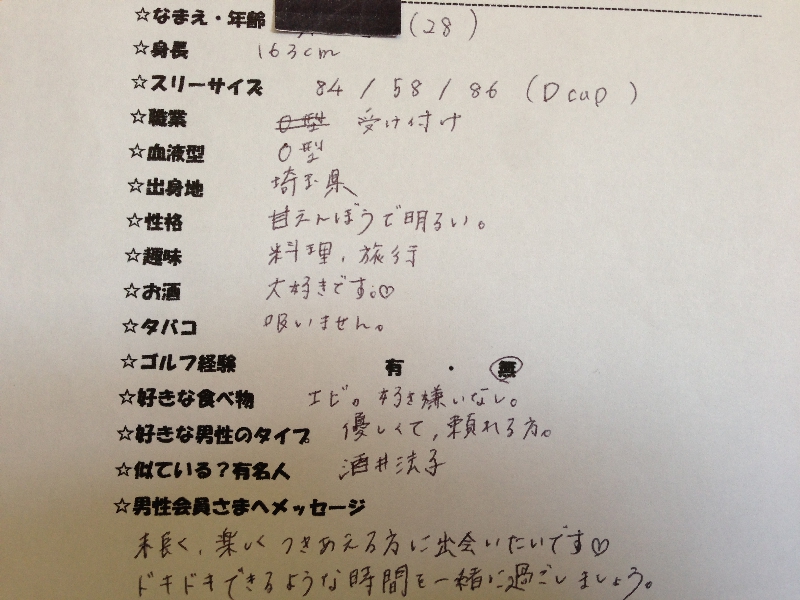 ☆なまえ・年齢 (28)
☆身長 163cm
☆スリーサイズ 84 / 58 / 86 (Dcup)
☆職業 O型 受け付け
☆血液型 O型
☆出身地 埼玉県
☆性格 甘えんぼうで明るい。
☆趣味 料理、旅行
☆お酒 大好きです。♡
☆タバコ 吸いません。
☆ゴルフ経験 有・無
☆好きな食べ物 エビ。好き嫌いなし。
☆好きな男性のタイプ 優しくて、頼れる方。
☆似ている?有名人 酒井法子
☆男性会員さまへメッセージ
末長く、楽しくつきあえる方に出会いたいです♡
ドキドキできるような時間を一緒に過ごしましょう。